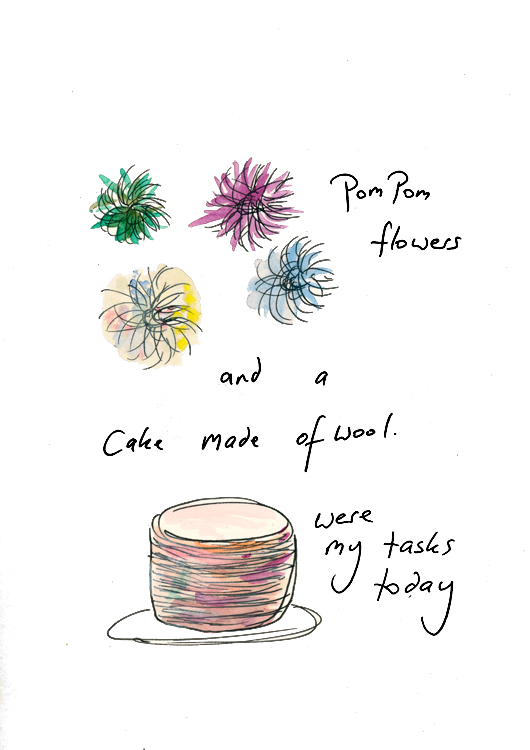 PomPom
flowers
and a
Cake made of wool.
were
my tasks
today